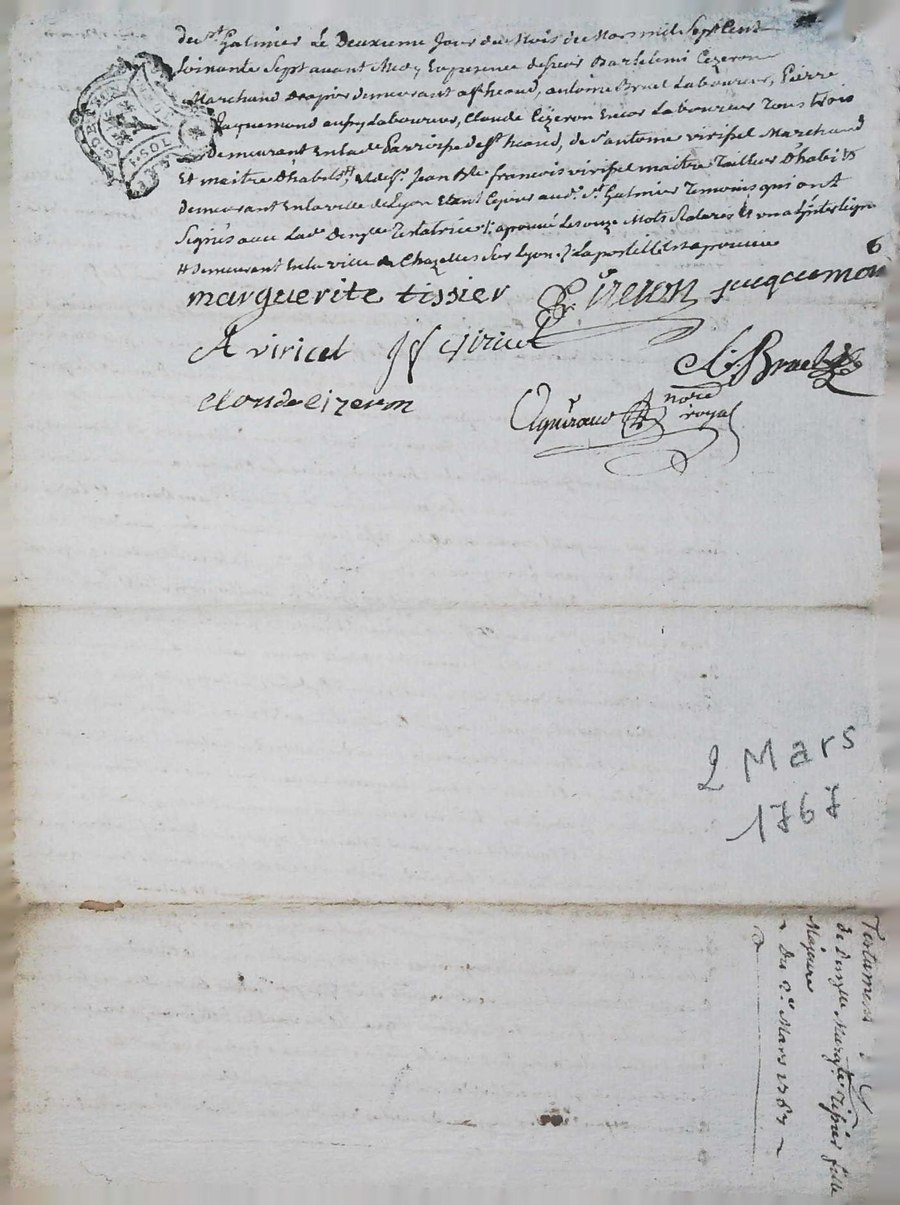 de St Galmier Le Deuxieme Jour du Mois de Mars mil Sept Cent
Soixante Sept avant Midy En presence de Barthelemi Cizeron
Marchand Drapier demeurant a antoine Bruel Laboureur, Pierre
Jaquemond aussy Laboureur, Claude Cizeron Encor Laboureur Tous trois
demeurant En lad. Parroisse de de Sr antoine viricel Marchand
Et maitre Et de Sr. Jean Bte francois viricel maitre Tailleur D'habits
demeurant En la ville de Lyon Etant audt. St. Galmier Temoins qui ont
Signés avec Lad. Demlle Testatrice aprouvé Les onze Mots
# demeurant En la ville de Chazelles Sur Lyon La postille Est aprouvée
6
marguerite tissier B. Cizeron jacquemon
A viricel J f Viricel
A. Bruel
Claude Cizeron
nore
royal
G. DE LYON
SOL
2 Mars
1767
Testament
de Demlle Margte Tissier fille
Majeure
~ Du 2e Mars 1767 ~